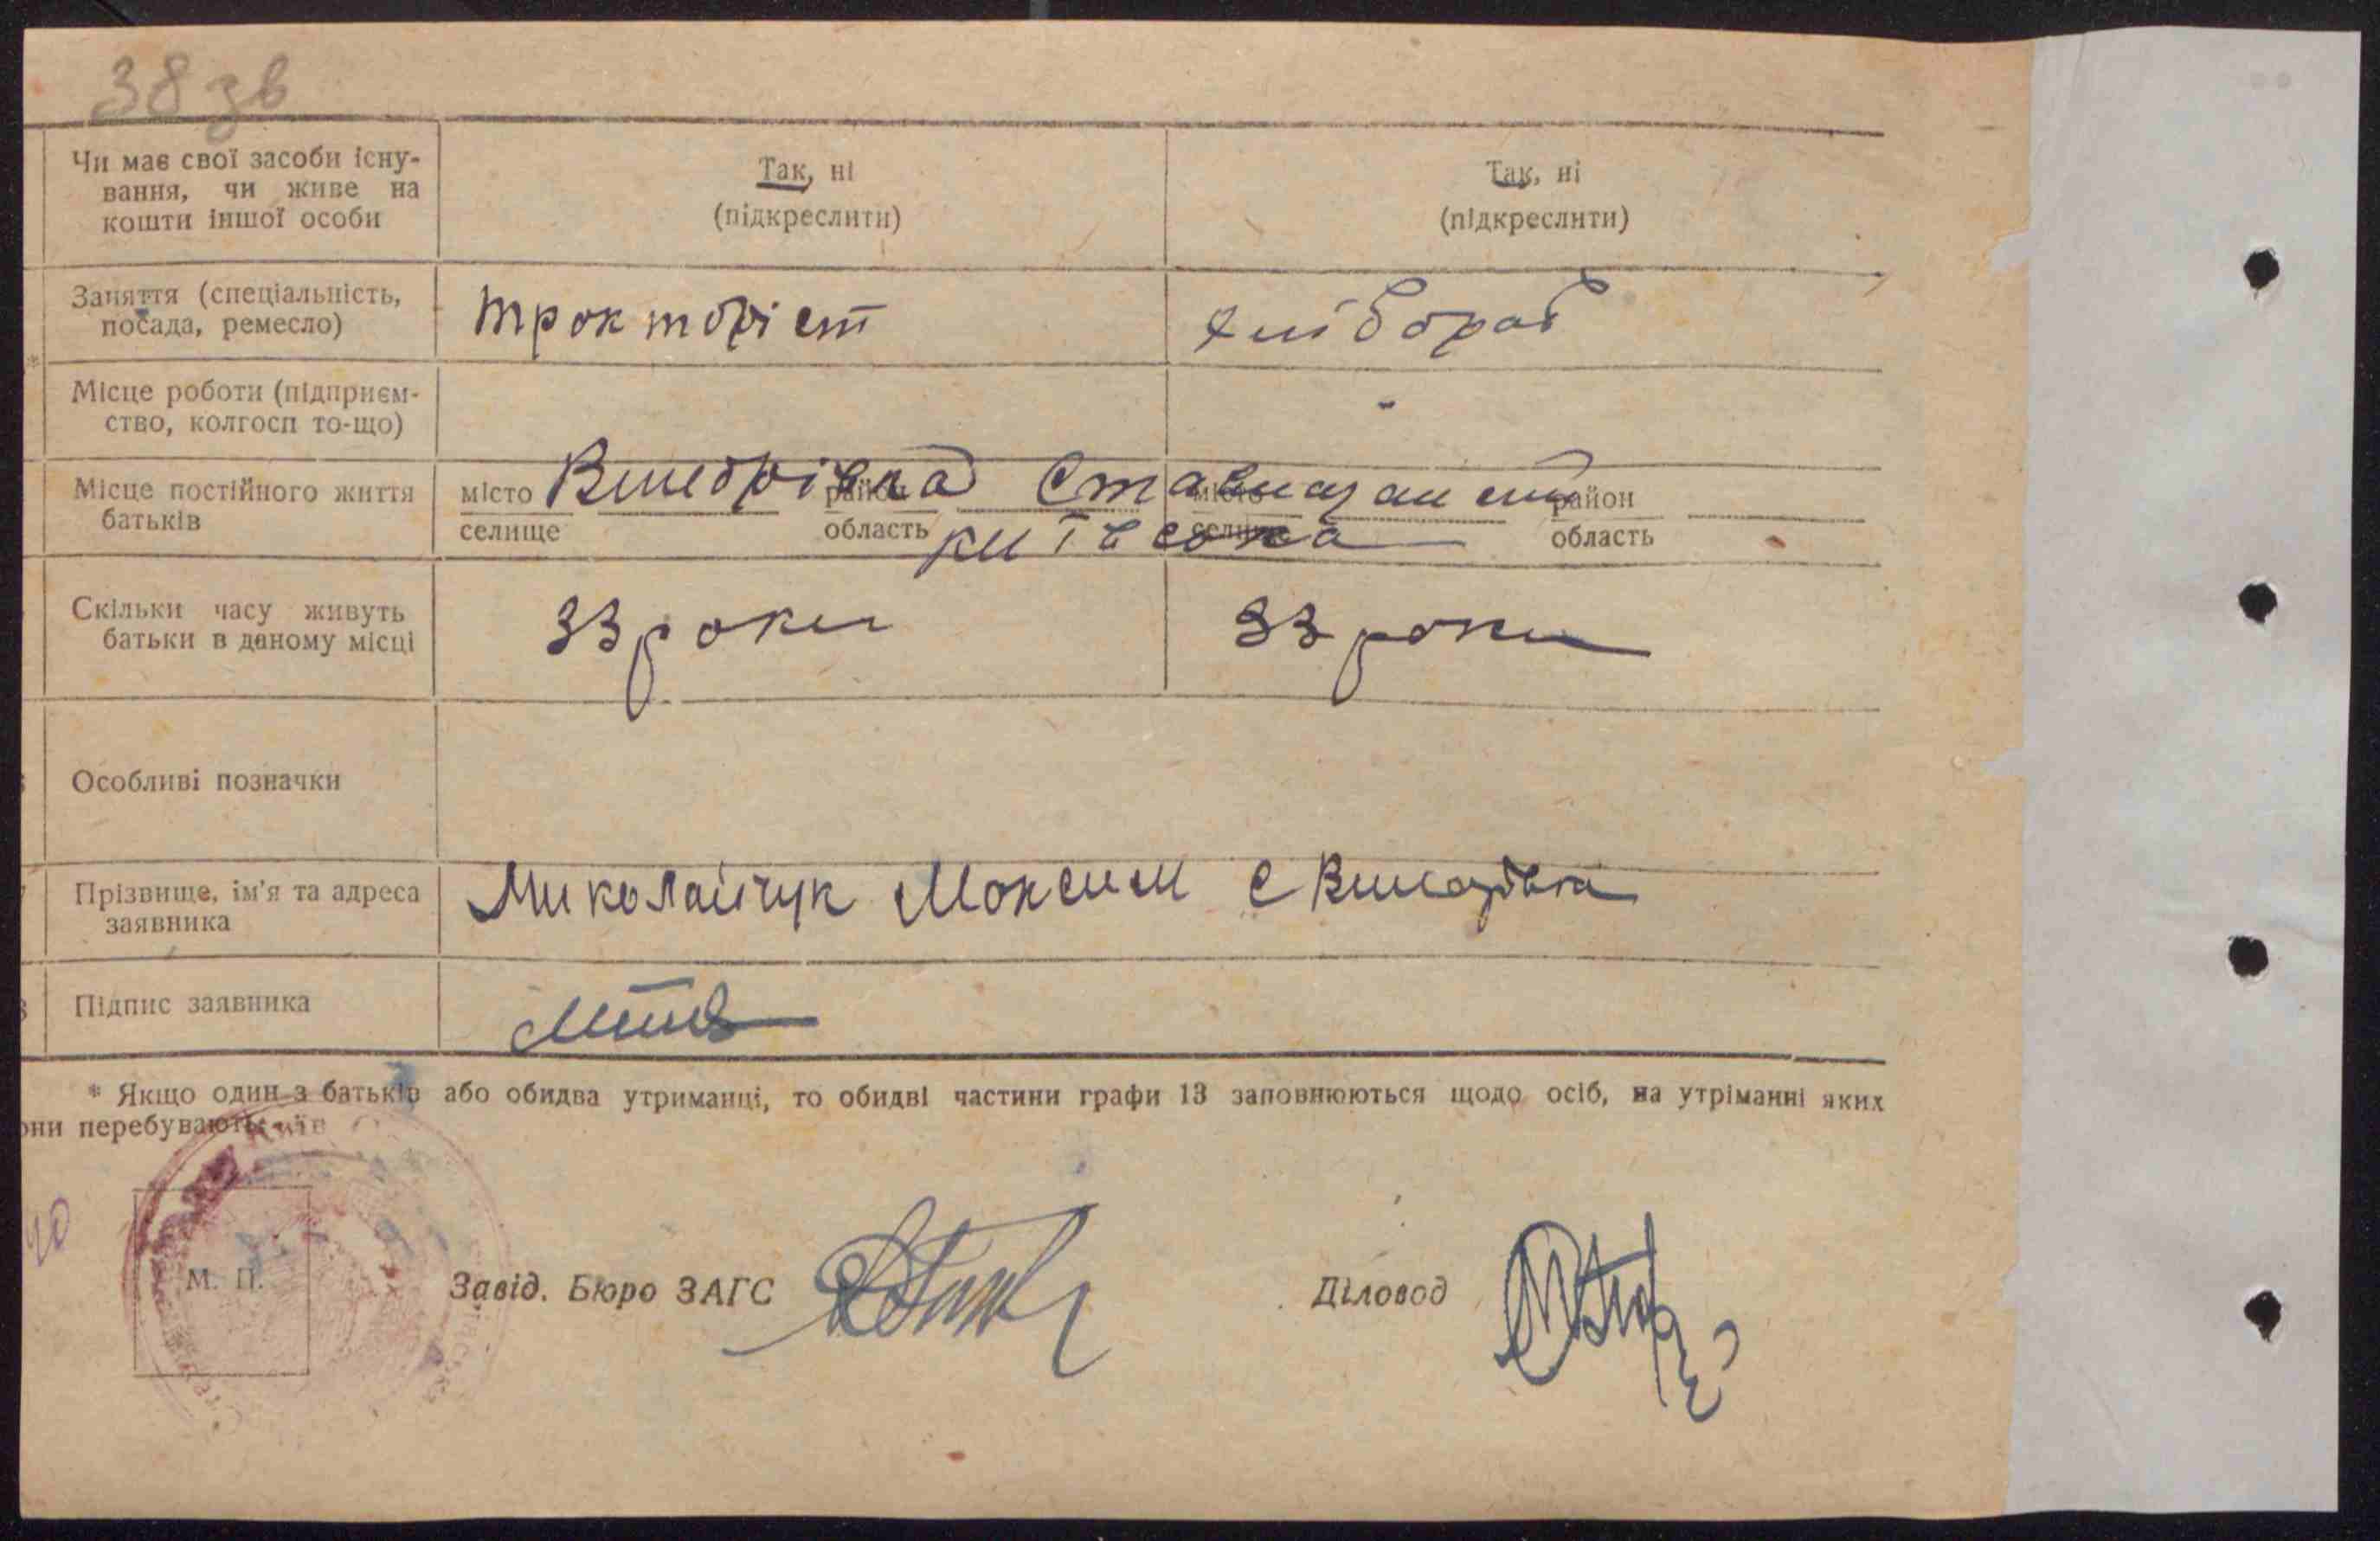 38 зв
Чи має свої засоби існу-
вання, чи живе на
кошти іншої особи
Так, ні
(підкреслити)
Так, ні
(підкреслити)
Заняття (спеціальність,
посада, ремесло)
трокторіст
хлібороб
*
Місце роботи (підприєм-
ство, колгосп то-що)
-
Місце постійного життя
батьків
місто
селище
район
область
місто
селище
район
область
київсска
Скільки часу живуть
батьки в даному місці
33 роки
33 роки
Особливі позначки
Прізвище, ім'я та адреса
заявника
Миколайчук Моксим с
Підпис заявника
* Якщо один з батьків або обидва утриманці, то обидві частини графи 13 заповнюються щодо осіб, на утріманні яких
они перебувають
М. П.
Завід. Бюро ЗАГС
Діловод